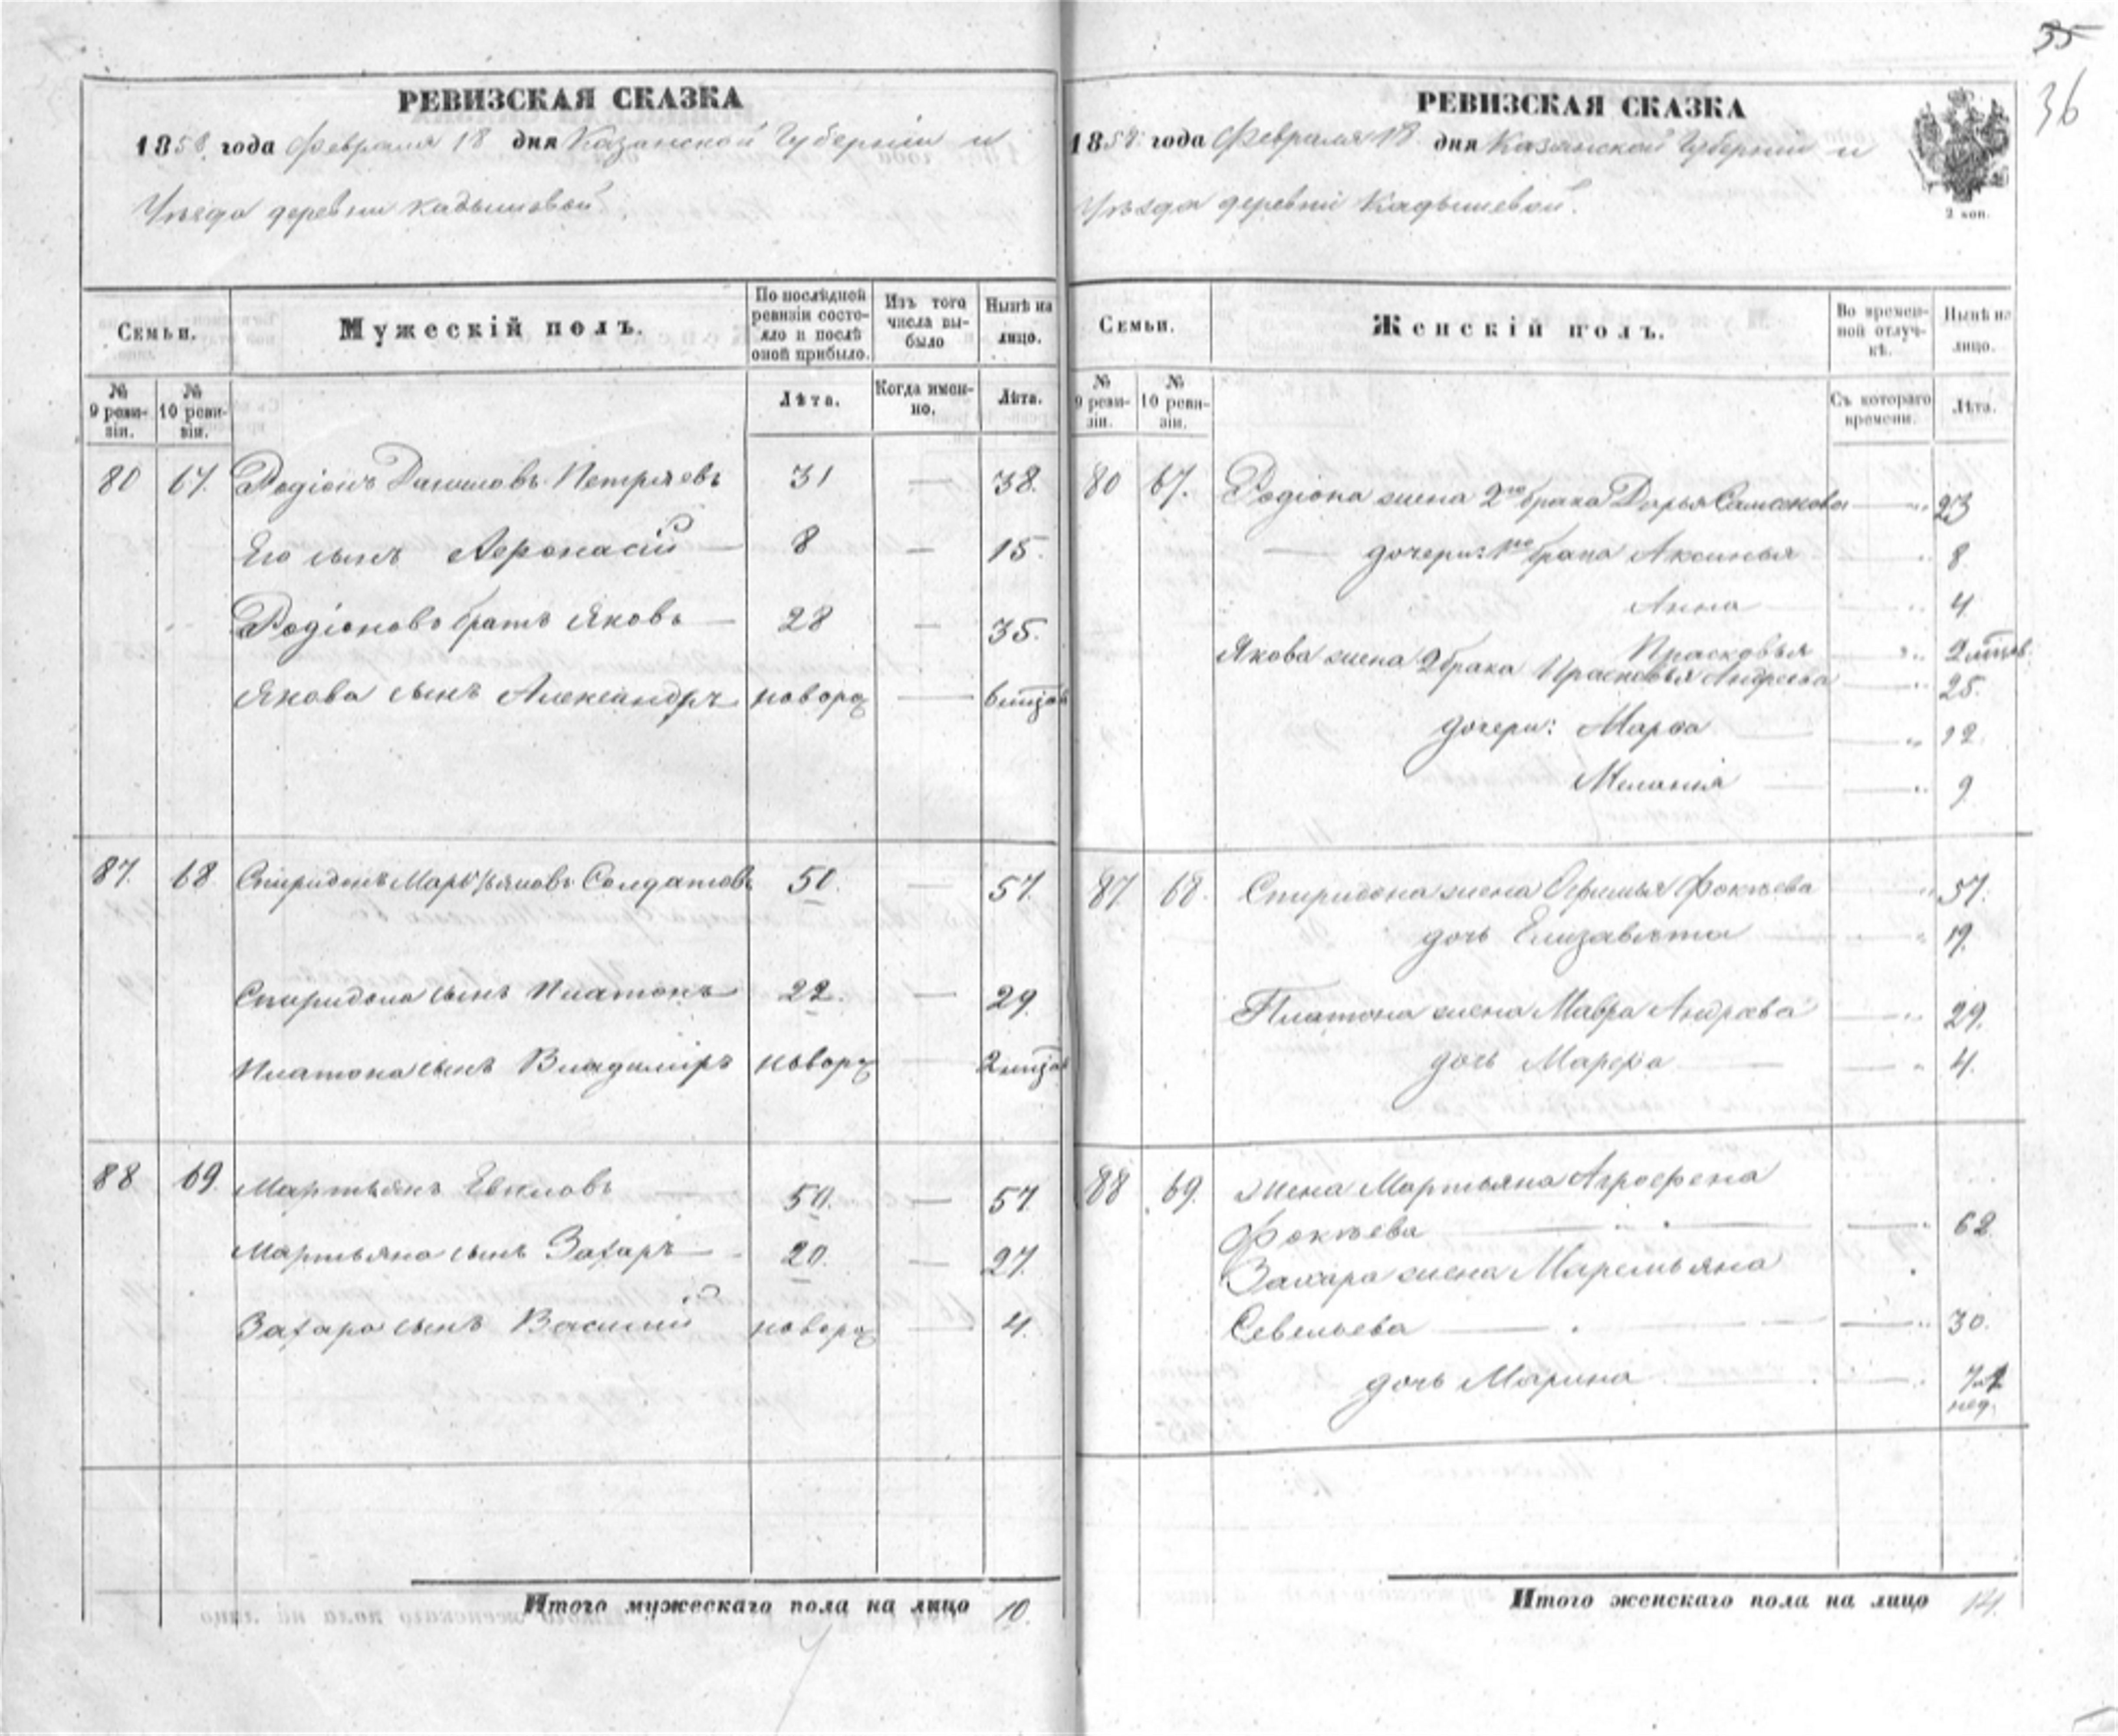 35
36
РЕВИЗСКАЯ СКАЗКА
1858 года Февраля 18 дня Казанской Губерніи и
Уѣзда деревни Кадышевой.
Семьи.
Мужескій полъ.
По послѣдней ревизіи состояло и послѣ оной прибыло.
Изъ того числа выбыло
Нынѣ на лицо.
№ 9 ревизіи.
№ 10 ревизіи.
Лѣта.
Когда именно.
Лѣта.
80 67. Родіонъ Даниловъ Петряевъ 31 — 38.
Его сынъ Афонасій — 8 — 15.
Родіоновъ братъ Яковъ — 28 — 35.
Якова сынъ Александръ новорож — 6 мцов
87. 68 Спиридонъ Мартьяновъ Солдатовъ 50. — 57.
Спиридона сынъ Платонъ 22. — 29.
Платона сынъ Владиміръ новорож — 2 мцов
88 69. Мартьянъ Евкловъ 50. — 57
Мартьяна сынъ Захаръ — 20. — 27.
Захара сынъ Василий новорож — 4.
Итого мужескаго пола на лицо 10.
РЕВИЗСКАЯ СКАЗКА
1858 года Февраля 18 дня Казанской Губерніи и
Уѣзда деревни Кадышевой.
2 коп.
Семьи.
Женскій полъ.
Во временной отлучкѣ.
Нынѣ на лицо.
№ 9 ревизіи.
№ 10 ревизіи.
Съ котораго времени.
Лѣта.
80 67. Родіона жена 2го брака Дарья Самсонова — 23
— дочери: 1го брака Аксинья 8
Анна — 4
Прасковья 2 мцов
Якова жена 2 брака Прасковья Андреева — 25.
дочери: Марфа — 12.
Меланія — 9
87 68. Спиридона жена Офимья Фокѣева 57.
дочь Елизавѣта — 19.
Платона жена Мавра Андреева — 29.
дочь Марфа — 4.
88 69. Жена Мартьяна Агрофена
Фокѣева — 62
Захара жена Маремьяна
Севельева — 30.
дочь Марина — нед.
Итого женскаго пола на лицо 14.